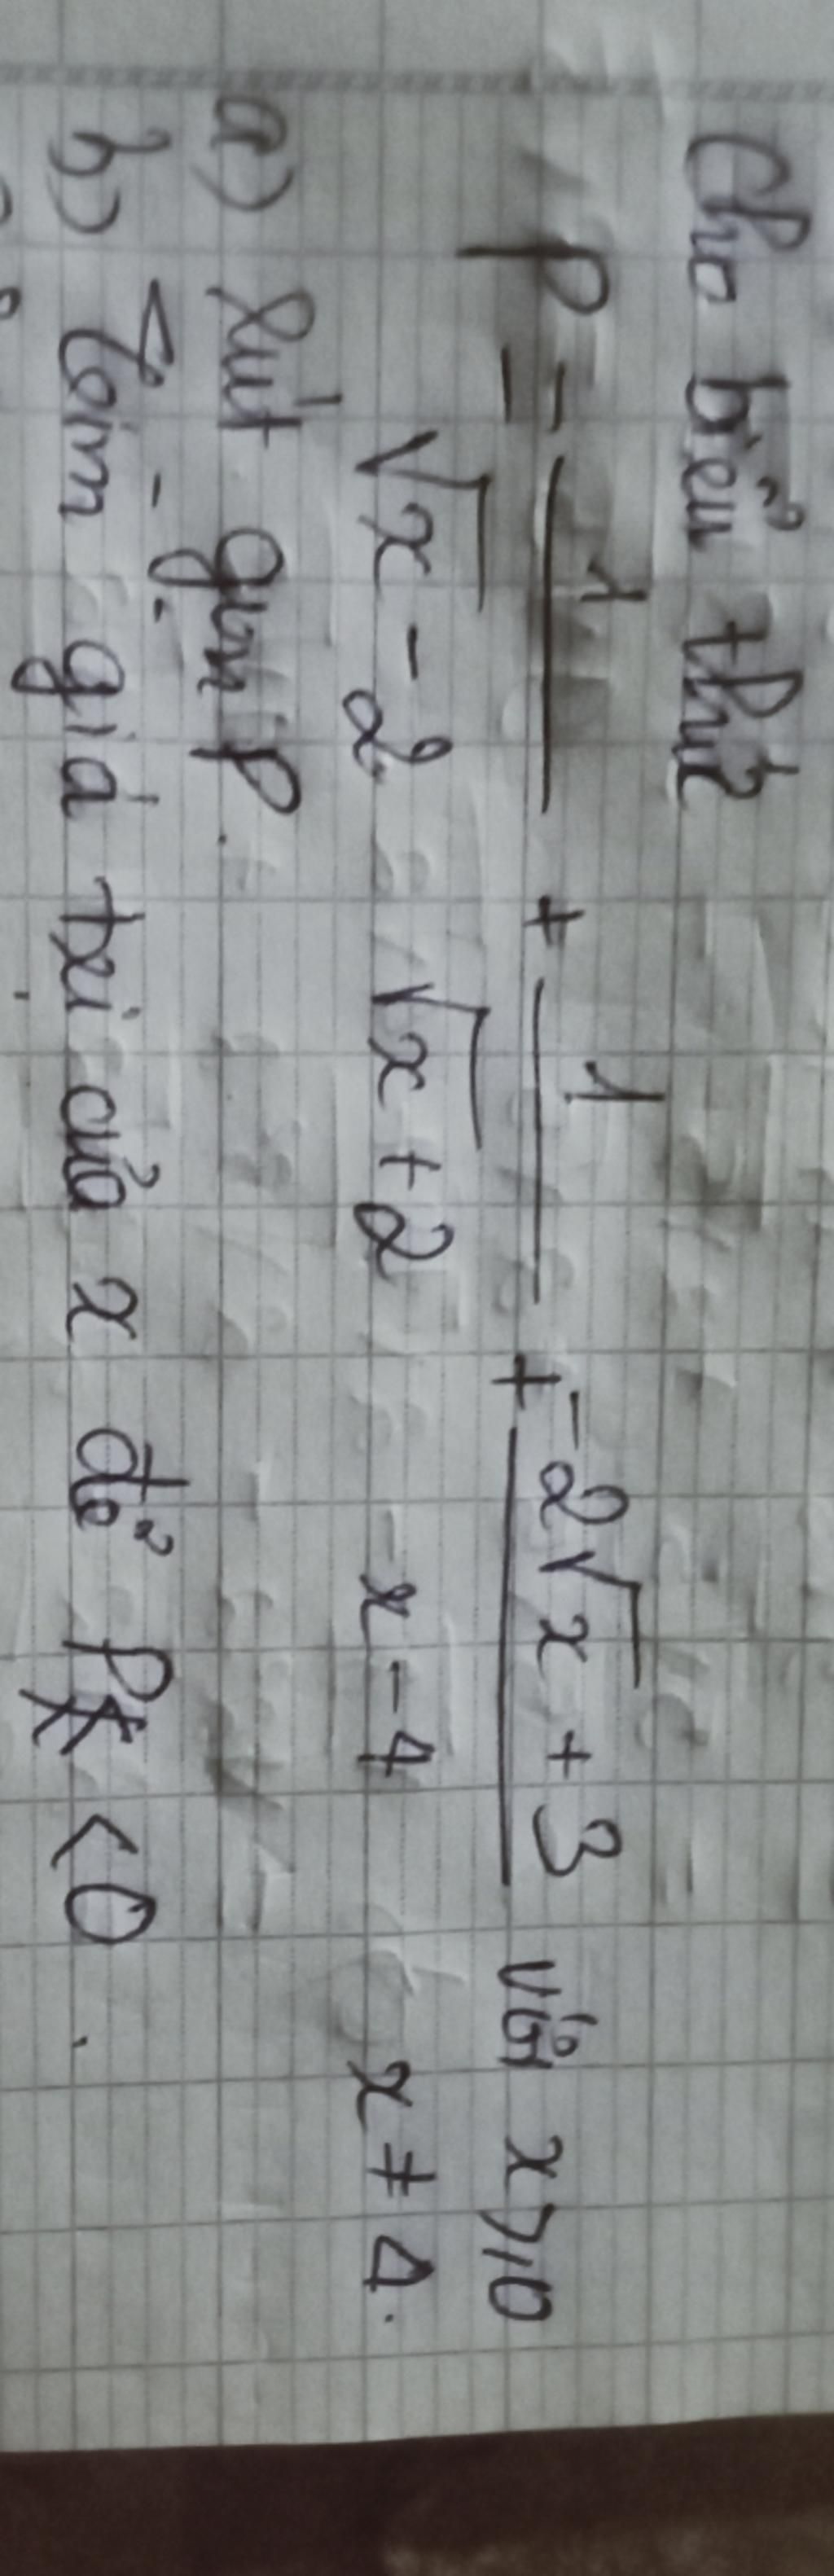 Cho biểu thức
P = 1/(√x - 2) + 1/(√x + 2) + (-2√x + 3)/(x - 4) với x ≥ 0
x ≠ 4.
a) Rút gọn P.
b) Tìm giá trị của x để P < 0.